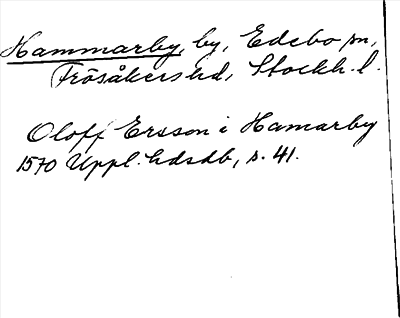 Hammarby, by, Edebo sn,
Frösåkers hd, Stockh. l.
Oloff Ersson i Hamarby
1570 Uppl. hdsdb, s. 41.